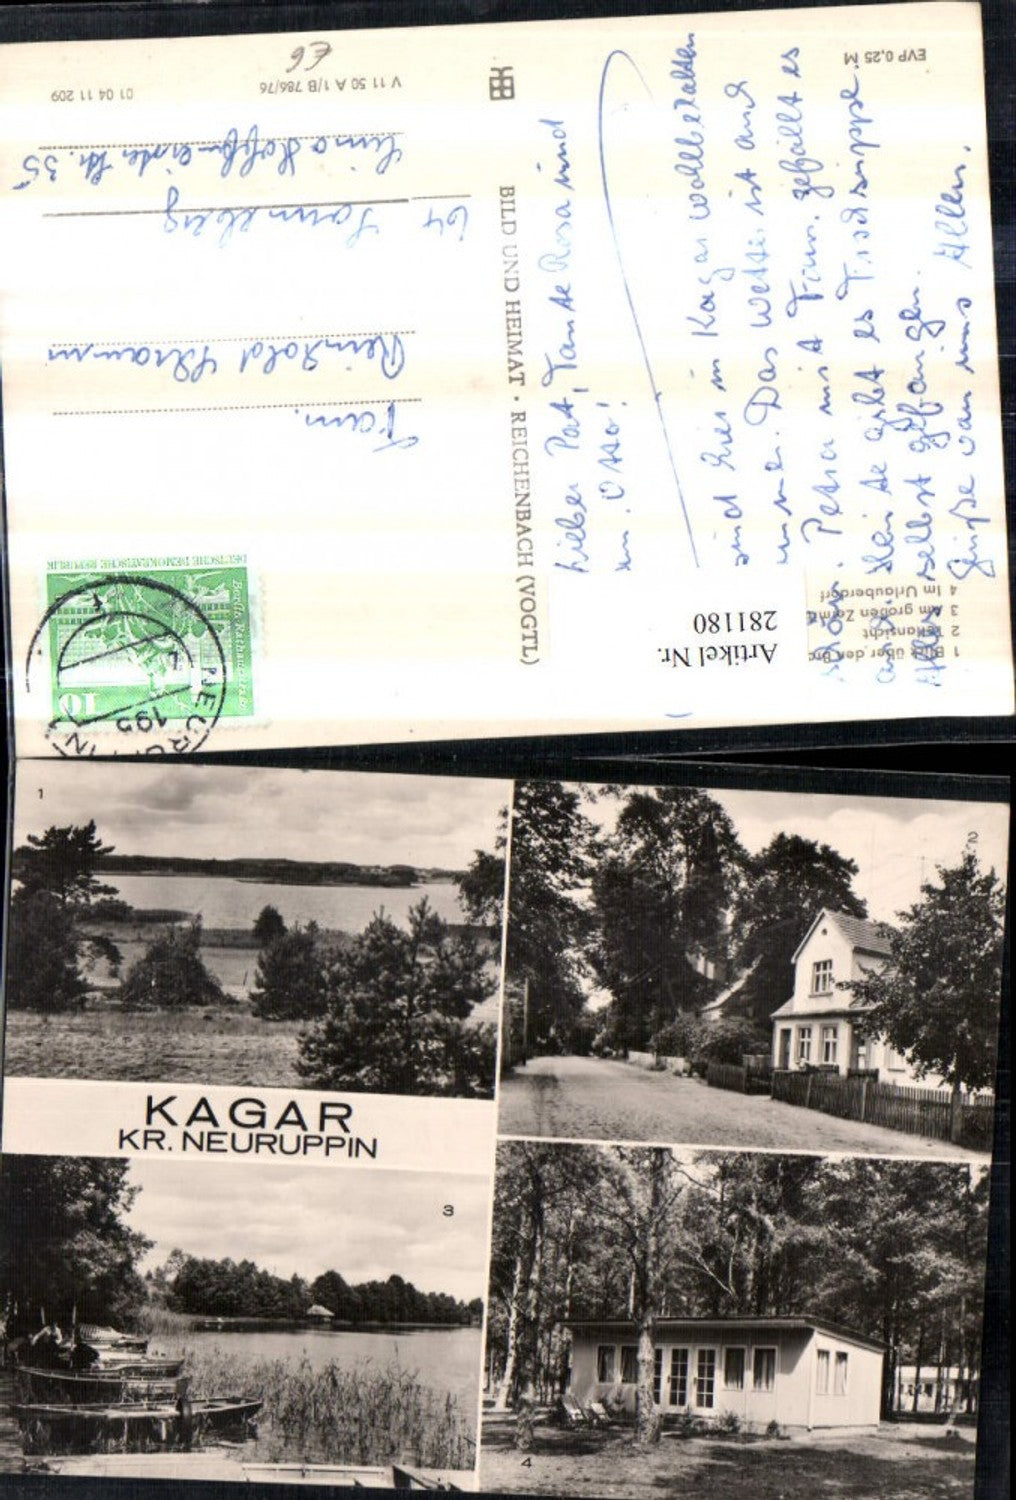 EVP 0,25 M
V 11 50 A 1/B 786/76
01 04 11 209
£6
BILD UND HEIMAT · REICHENBACH (VOGTL)
Lieber Pat, Tante Rosa und
Otto!
sind hier in Kagar wohlbehalten
Das Wetter ist auch
schön. Petra mit Fam. gefällt es
auch. Heute gibt es Fischsuppe.
Alles selbst gefangen.
Grüße von uns Allen.
Fam.
Reinhold
64 Sonneberg
Str. 35
DEUTSCHE DEMOKRATISCHE REPUBLIK
Berlin, Rathausstraße
10
NEURUPPIN
195
1 Blick über den
2 Teilansicht
3 Am großen
4 Im Urlauberdorf
Artikel Nr.
281180
1
2
KAGAR
KR. NEURUPPIN
3
4